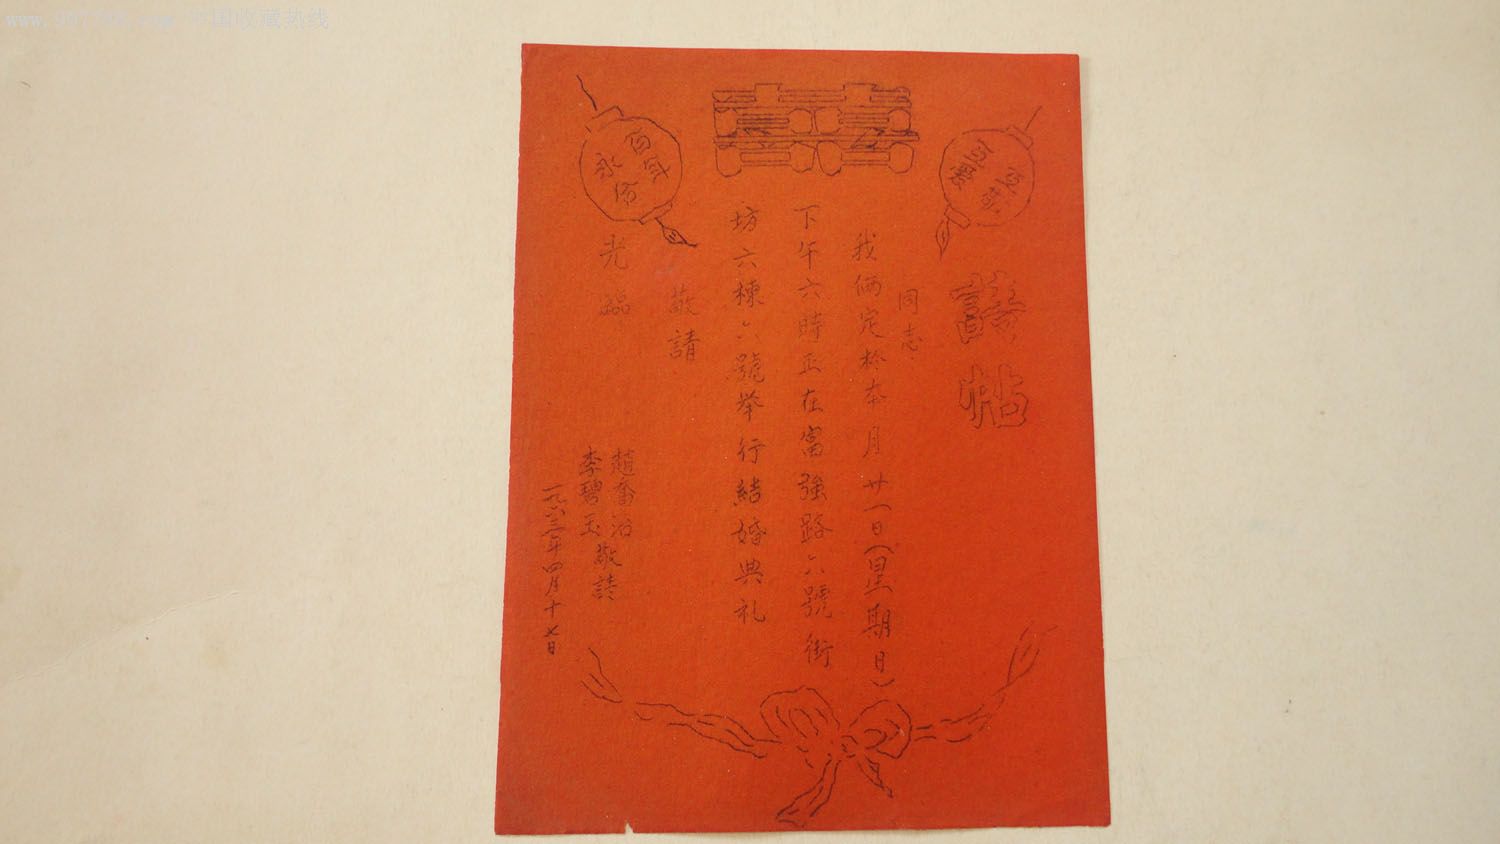 www.997788.com/中国收藏热线
囍
互敬
互愛
請帖
同志
我倆定於本月廿一日(星期日)
下午六時正在富強路六號街
坊六棟六號举行結婚典礼
敬請
百年
永合
光臨
趙奮
李碧玉
敬請
一九六三年四月十七日